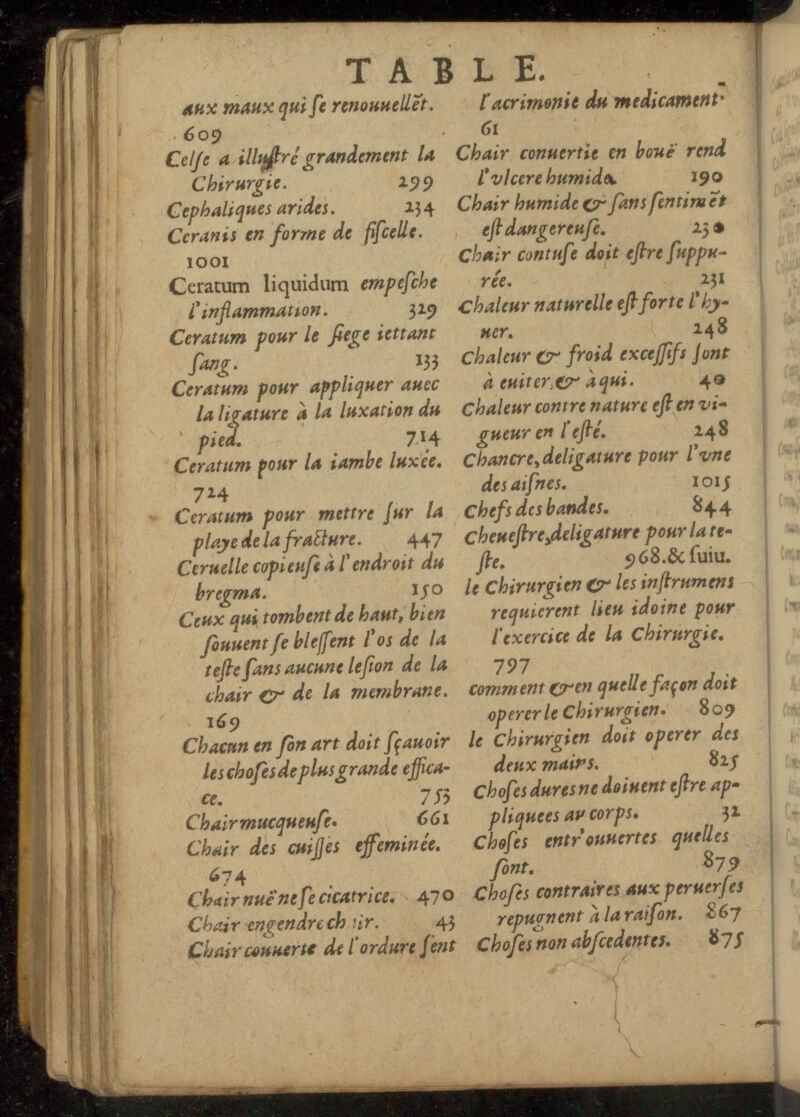 TABLE.
aux maux qui ſe renouuellẽt.
609
Celſe a illuſtré grandement la
Chirurgie. 299
Cephaliques arides. 234
Ceranis en forme de fiſcelle.
1001
Ceratum liquidum empeſche
l'inflammation. 329
Ceratum pour le ſiege iettant
ſang. 133
Ceratum pour appliquer auec
la ligature à la luxation du
pied. 714
Ceratum pour la iambe luxée.
724
Ceratum pour mettre ſur la
playe de la fracture. 447
Ceruelle copieuſe à l'endroit du
bregma. 150
Ceux qui tombent de haut, bien
ſouuent ſe bleſſent l'os de la
teſte ſans aucune leſion de la
chair & de la membrane.
169
Chacun en ſon art doit ſçauoir
les choſes de plus grande effica-
ce. 753
Chair mucqueuſe. 661
Chair des cuiſſes effeminée.
674
Chair nuë ne ſe cicatrice. 470
Chair engendre chair. 43
Chair couuerte de l'ordure ſent
l'acrimonie du medicament.
61
Chair conuertie en bouë rend
l'vlcere humide. 190
Chair humide & ſans ſentimẽt
eſt dangereuſe. 230
Chair contuſe doit eſtre ſuppu-
rée. 231
Chaleur naturelle eſt forte l'hy-
uer. 248
Chaleur & froid exceſſifs ſont
à euiter, & à qui. 40
Chaleur contre nature eſt en vi-
gueur en l'eſté. 248
Chancre, deligature pour l'vne
des aiſnes. 1015
Chefs des bandes. 844
Cheueſtre, deligature pour la te-
ſte. 968. & ſuiu.
le Chirurgien & les inſtrumens
requierent lieu idoine pour
l'exercice de la Chirurgie.
797
comment & en quelle façon doit
operer le Chirurgien. 809
le Chirurgien doit operer des
deux mains. 825
Choſes dures ne doiuent eſtre ap-
pliquees au corps. 32
Choſes entr'ouuertes quelles
ſont. 879
Choſes contraires aux peruerſes
repugnent à la raiſon. 867
Choſes non abſcedentes. 875